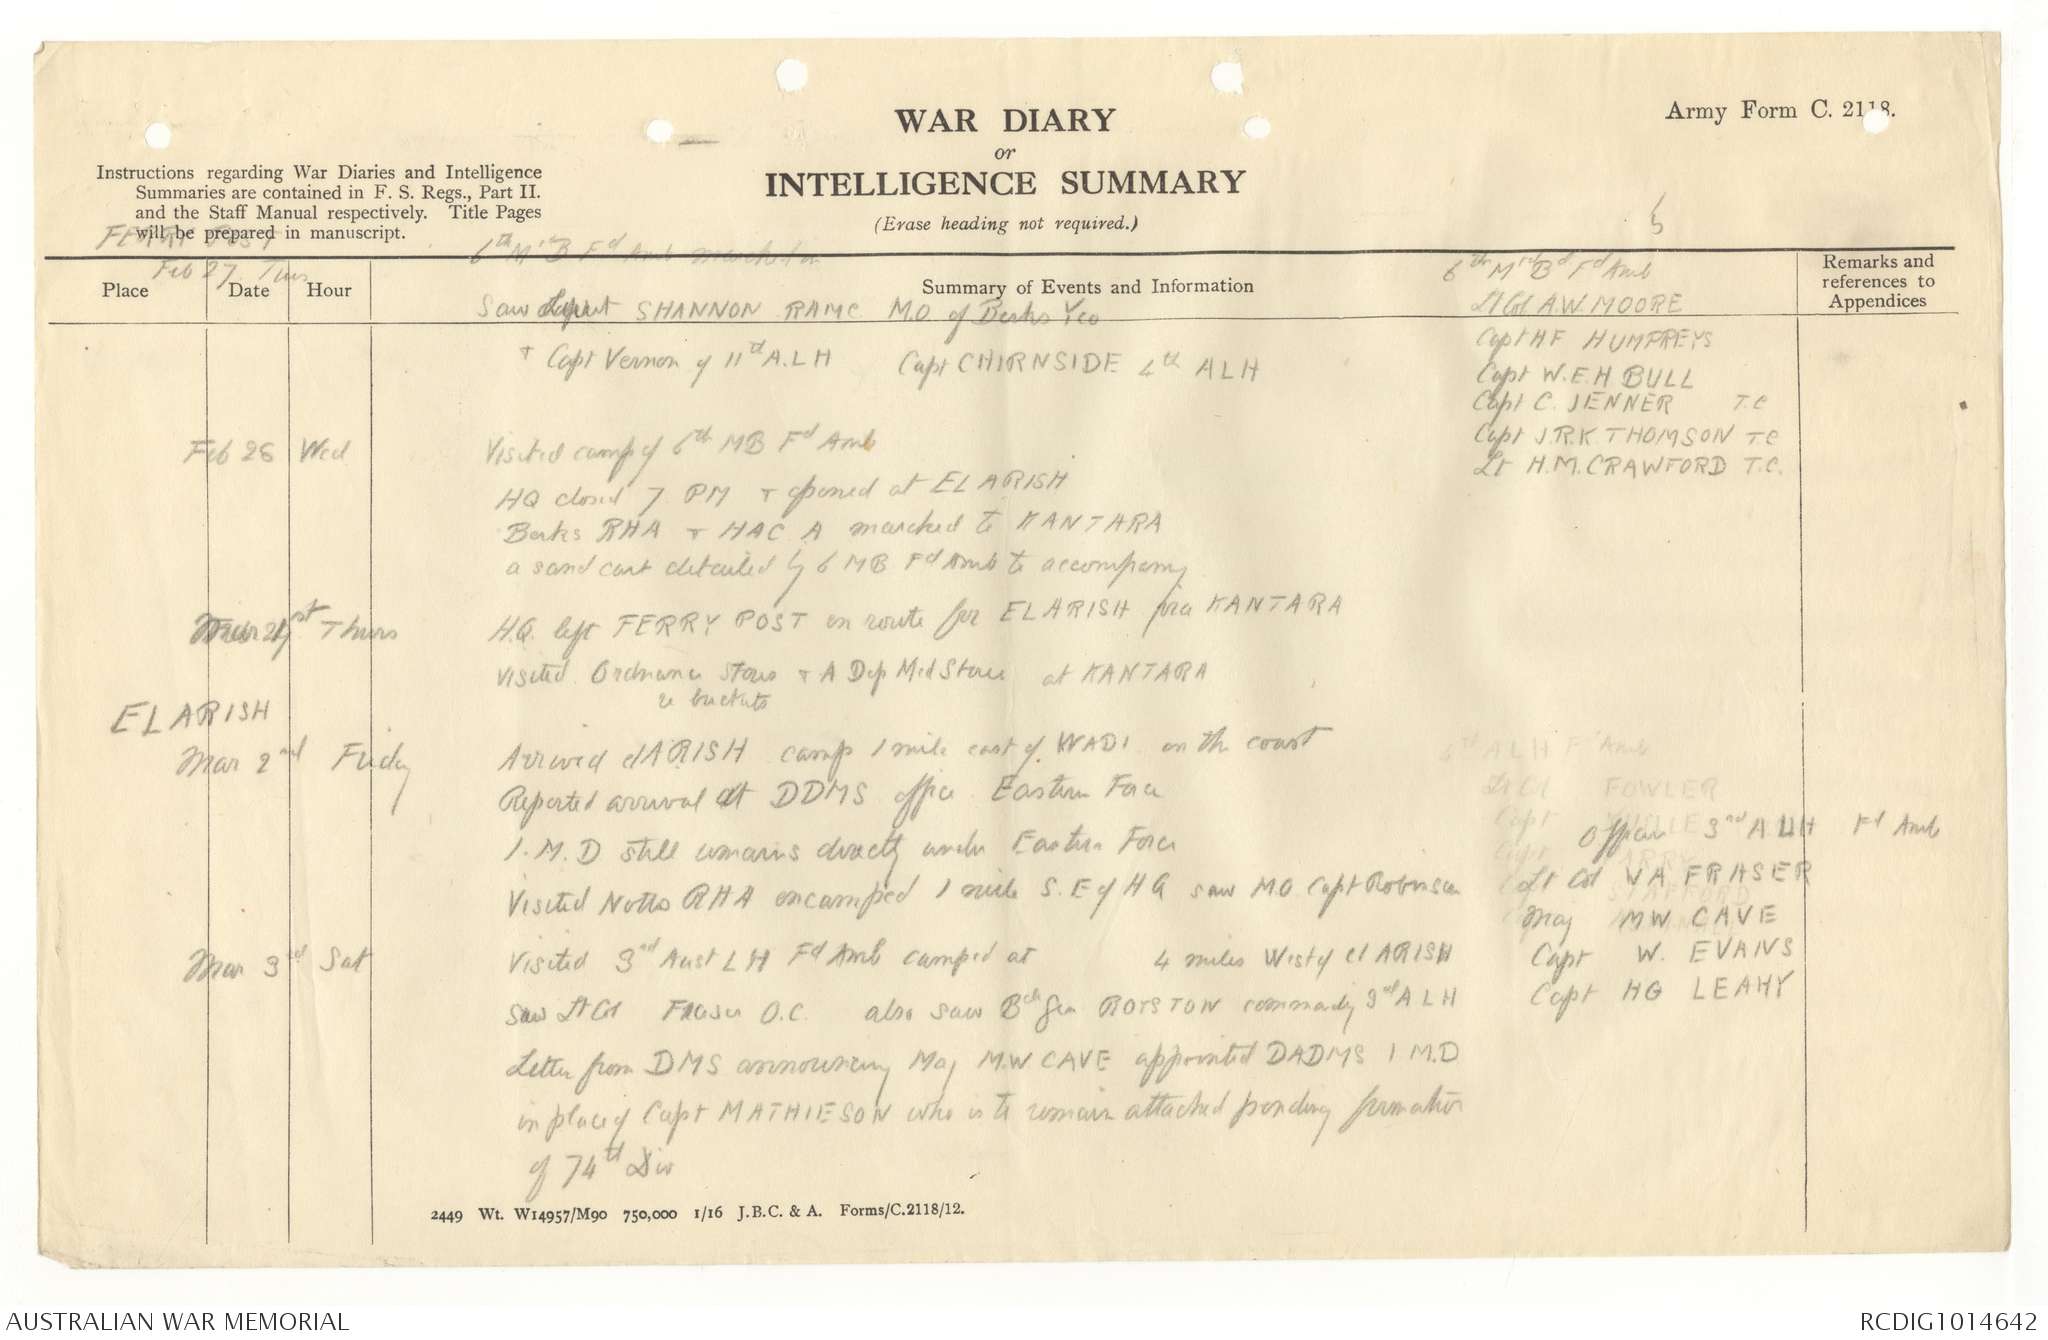 WAR DIARY
or
INTELLIGENCE SUMMARY
(Erase heading not required.)
Army Form C. 2118.
Instructions regarding War Diaries and Intelligence
Summaries are contained in F. S. Regs., Part II.
and the Staff Manual respectively. Title Pages
will be prepared in manuscript.
5
FERRY POST
Feb 27 Tues
6th Mtd B Fd Amb marched in
Place
Date
Hour
Summary of Events and Information
Remarks and
references to
Appendices
Saw SHANNON RAMC M.O of Berks Yeo
+ Capt Vernon of 11th A.L.H Capt CHIRNSIDE 4th ALH
6th Mtd Bd Fd Amb
Lt Col A.W. MOORE
Capt HF HUMPREYS
Capt W.E.H. BULL
Capt C. JENNER T.C
Capt J.R.K. THOMSON T.C
Lt H.M. CRAWFORD T.C.
Feb 28 Wed
Visited camp of 6th MB Fd Amb
HQ closed 7 PM + opened at EL ARISH
Berks RHA + HAC A marched to KANTARA
a sand cart detailed by 6 MB Fd Amb to accompany
Mar 1st Thurs
H.Q. left FERRY POST en route for EL ARISH via KANTARA
Visited Ordnance Stores + A Dep Med Stores at KANTARA
re buckets
EL ARISH
Mar 2nd Friday
Arrived el ARISH camp 1 mile east of WADI on the coast
Reported arrival at DDMS office Eastern Force
I.M.D still remains directly under Eastern Force
Visited Notts RHA encamped 1 mile S.E of HQ saw MO Capt Robinson
6th ALH Fd Amb
Lt Col FOWLER
Capt
STAFFORD
Officers 3rd A.LH Fd Amb
Lt Col WA FRASER
Maj MW CAVE
Capt W. EVANS
Capt HG LEAHY
Mar 3rd Sat
Visited 3rd Aust LH Fd Amb camped at 4 miles West of el ARISH
Saw Lt Col Fraser O.C. also saw Bde Gen ROYSTON commandg 3rd ALH
Letter from DMS announcing Maj M.W CAVE appointed DADMS I.M.D
in place of Capt MATHIESON who is to remain attached pending formation
of 74th Div
2449 Wt. W14957/M90 750,000 1/16 J.B.C. & A. Forms/C.2118/12.
AUSTRALIAN WAR MEMORIAL
RCDIG1014642